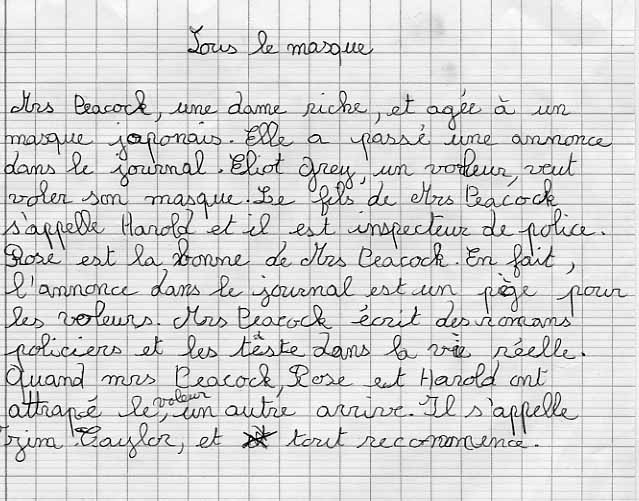 Sous le masque
Mrs Peacock, une dame riche, et agée à un
masque japonais. Elle a passé une annonce
dans le journal. Eliot Grey, un voleur, veut
voler son masque. Le fils de Mrs Peacock
s'appelle Harold et il est inspecteur de police.
Rose est la bonne de Mrs Peacock. En fait,
l'annonce dans le journal est un piège pour
les voleurs. Mrs Peacock écrit des romans
policiers et les tèste dans la vie réelle.
Quand mrs Peacock, Rose et Harold ont
attrapé le voleur, un autre arrive. Il s'appelle
Tjim Taylor, et tout recommence.